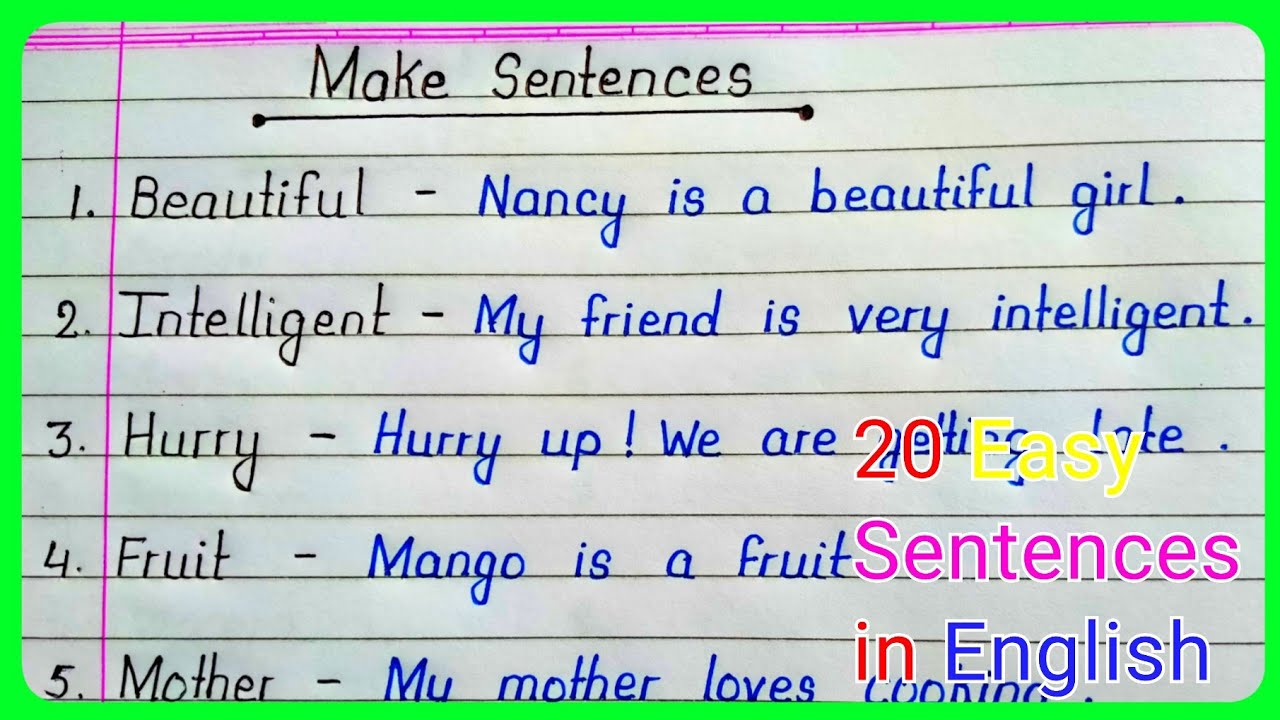 Make Sentences
1. Beautiful - Nancy is a beautiful girl.
2. Intelligent - My friend is very intelligent.
3. Hurry - Hurry up! We are getting late.
4. Fruit - Mango is a fruit
5. Mother - My mother loves cooking.
20 Easy
Sentences
in English